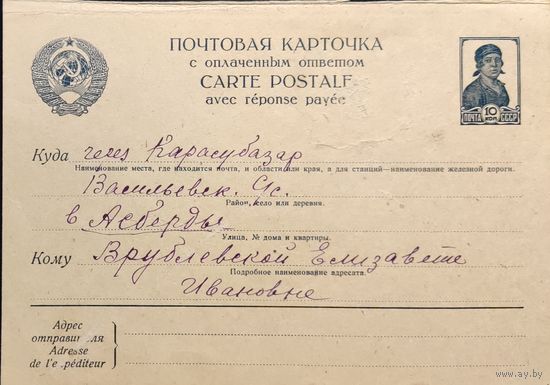 ПОЧТОВАЯ КАРТОЧКА
с оплаченным ответом
CARTE POSTALE
avec réponse payée
ПОЧТА 10 КОП. СССР
Куда через Карасубазар
Наименование места, где находится почта, и области или края, а для станций—наименование железной дороги.
Васильевск. С/с.
Район, село или деревня.
в Асборды
Улица, № дома и квартиры.
Кому Врублевской Елизавете
Подробное наименование адресата.
Ивановне
Адрес
отправителя
Adresse
de l'expéditeur
www.ay.by